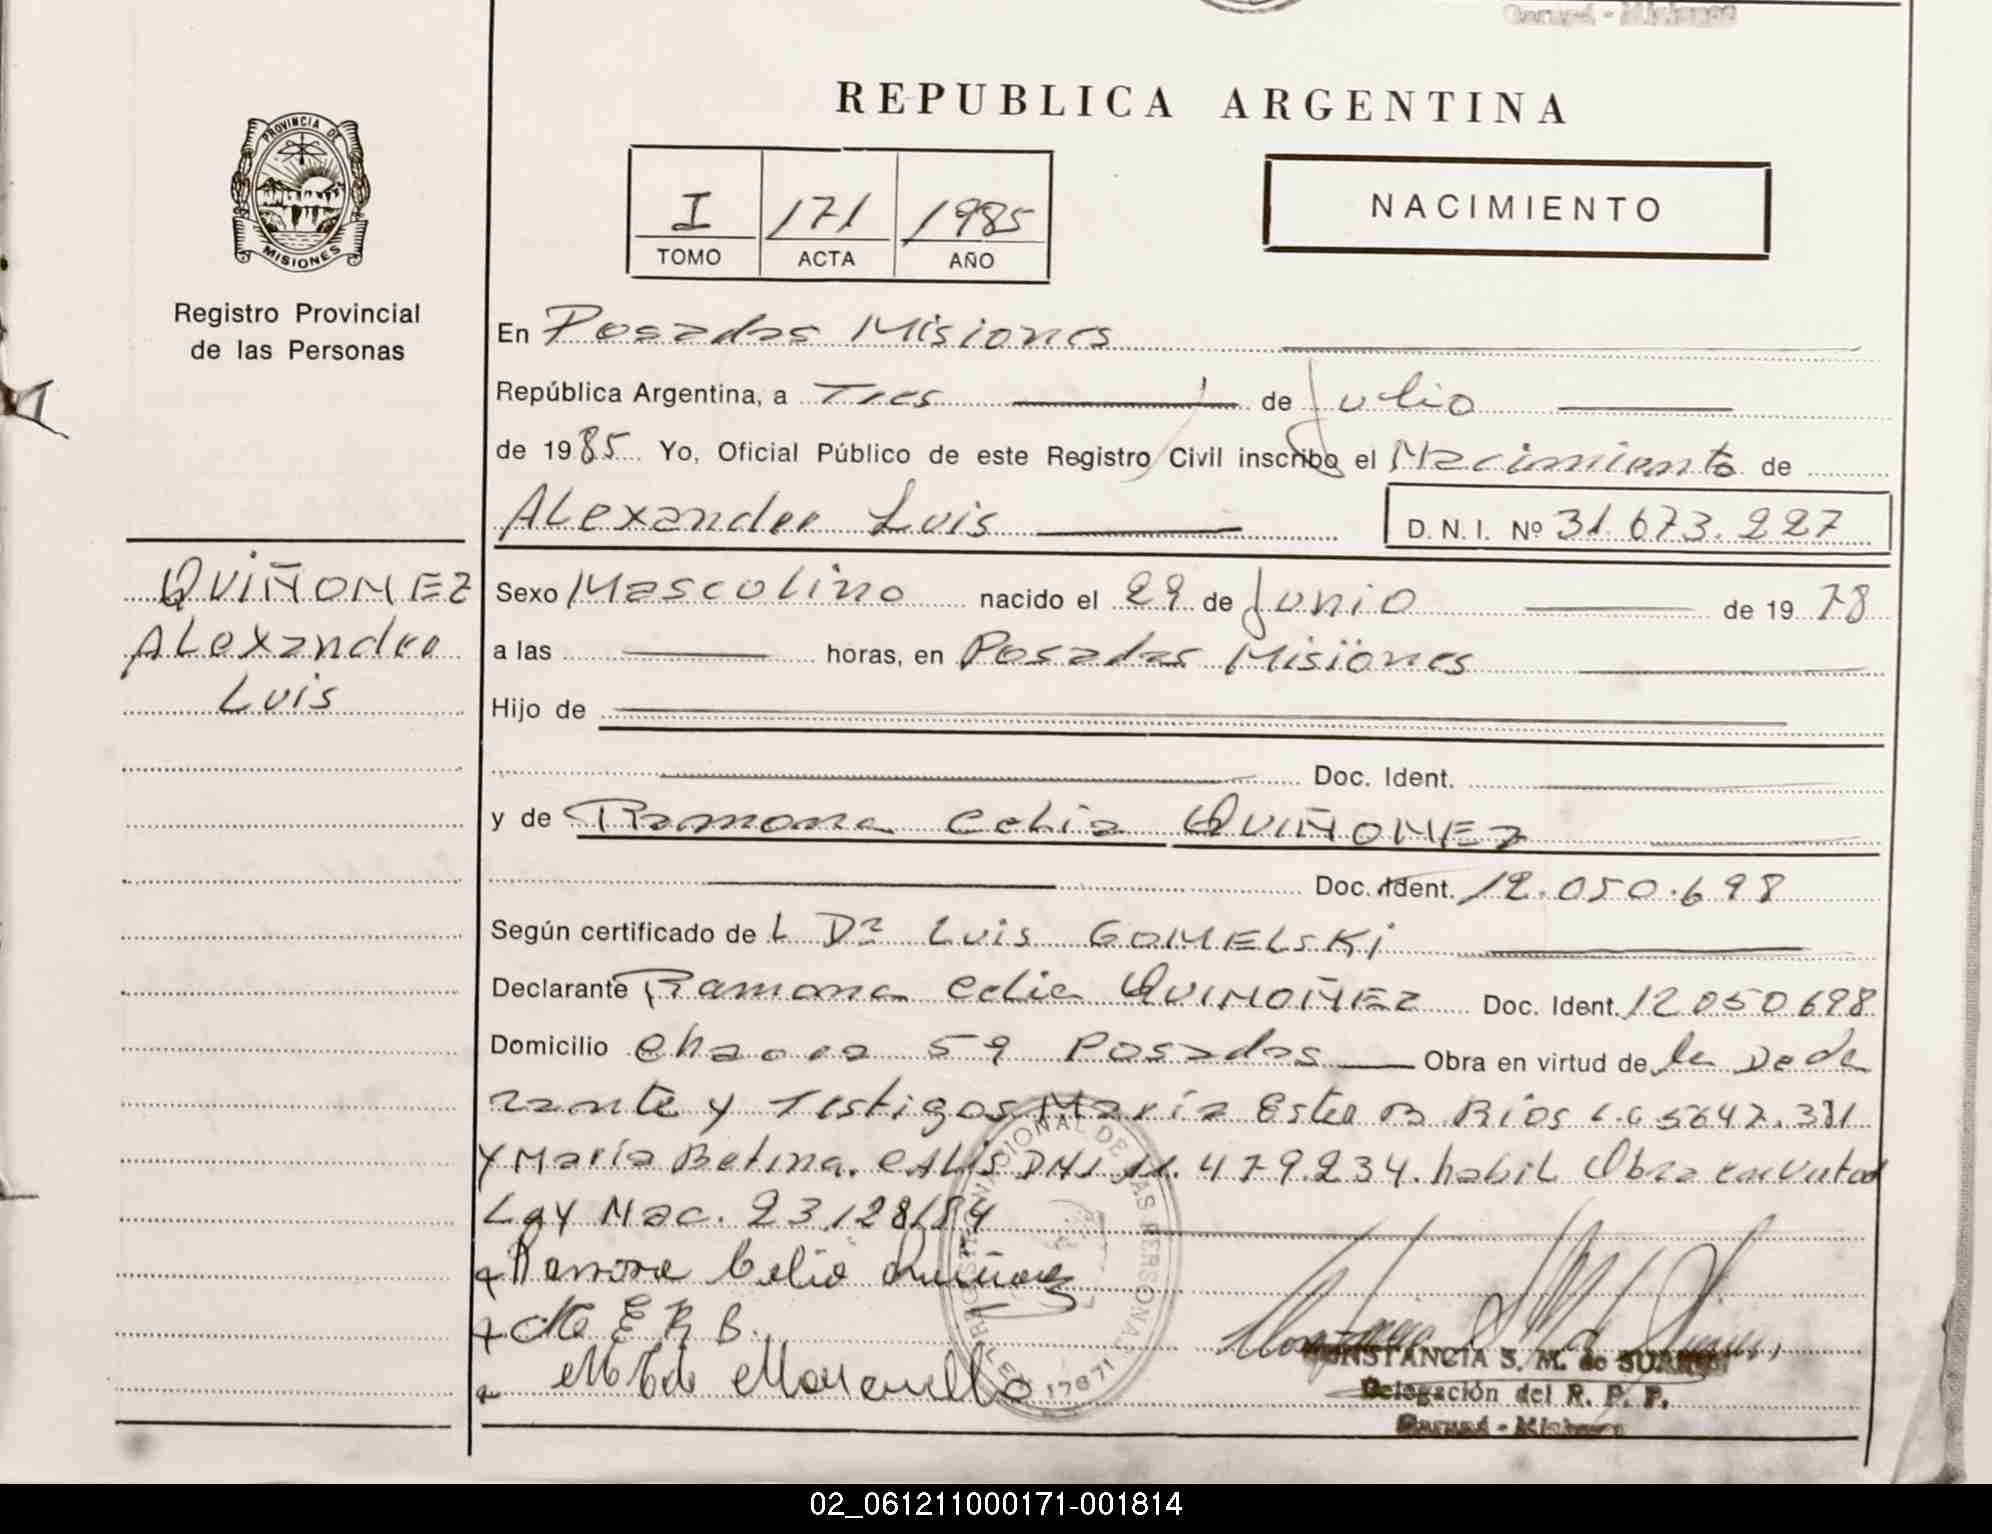 Garupá - Misiones
REPUBLICA ARGENTINA
PROVINCIA DE
MISIONES
Registro Provincial
de las Personas
I 171 1985
TOMO ACTA AÑO
NACIMIENTO
En Posadas Misiones
República Argentina, a Tres de Julio
de 1985 Yo, Oficial Público de este Registro Civil inscribo el Nacimiento de
Alexander Luis
D. N. I. Nº 31.673.227
QUIÑONEZ
Alexander
Luis
Sexo Masculino nacido el 29 de Junio de 1978
a las horas, en Posadas Misiones
Hijo de
Doc. Ident.
y de Ramona Celia QUIÑONEZ
Doc. Ident. 12.050.698
Según certificado de L Dr Luis GOMELSKi
Declarante Ramona Celia QUIÑOÑEZ Doc. Ident. 12050698
Domicilio Chacra 59 Posadas Obra en virtud de la Decla
rante y Testigos María Ester B. Ríos L.C 5647.381
y María Betina DNI 11.479.234. habil Obra en virtud
Ley Nac. 23.128/84
Ramona Celia Quiñonez
M E R B.
REGISTRO NACIONAL DE LAS PERSONAS
LEY 17671
CONSTANCIA S. M. de SUAREZ
Delegación del R. P. P.
Garupá - Misiones
02_061211000171-001814